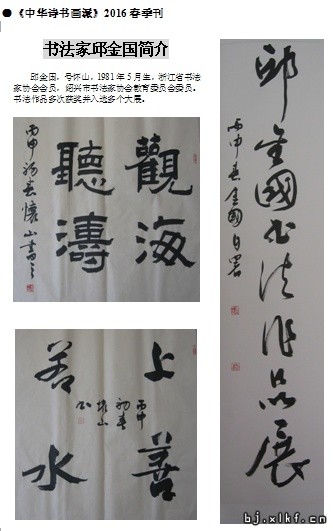 ●《中华诗书画派》2016春季刊
书法家邱金国简介
邱金国，号怀山，1981年5月生，浙江省书法
家协会会员，绍兴市书法家协会教育委员会委员。
书法作品多次获奖并入选多个大展。
觀海
聽濤
丙申初春懷山書
上善
若水
丙申
初春
怀山
邱金國书法作品展
丙申春金國自署
bj.xlkf.cn